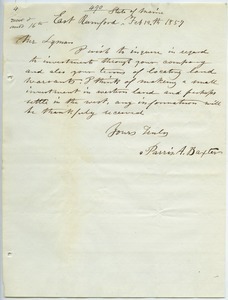 State of Maine
East Rumford Feb 12th 1857
Mr Lyman
I wish to inquire in regard
to investments through your company
and also your terms of locating land
warrants I think of making a small
investment in western land and perhaps
settle in the west, any information will
be thankfully received
Yours Truly
Parris A. Baxter